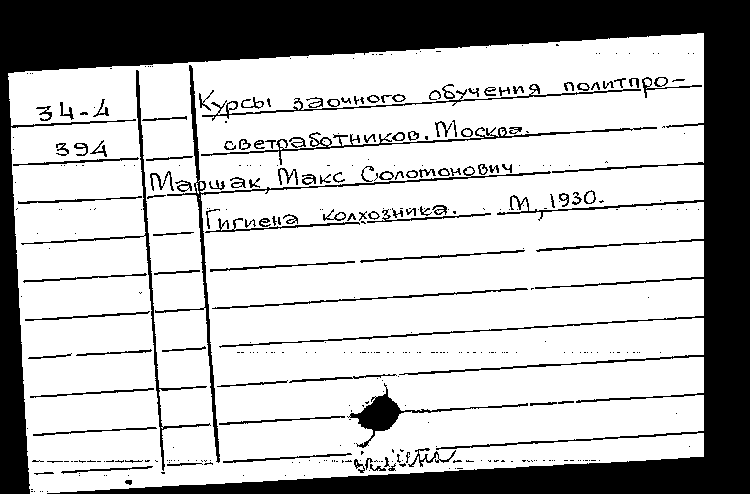 34-4 Курсы заочного обучения политпро-
394 светработников. Москва.
Маршак, Макс Соломонович
Гигиена колхозника. М., 1930.